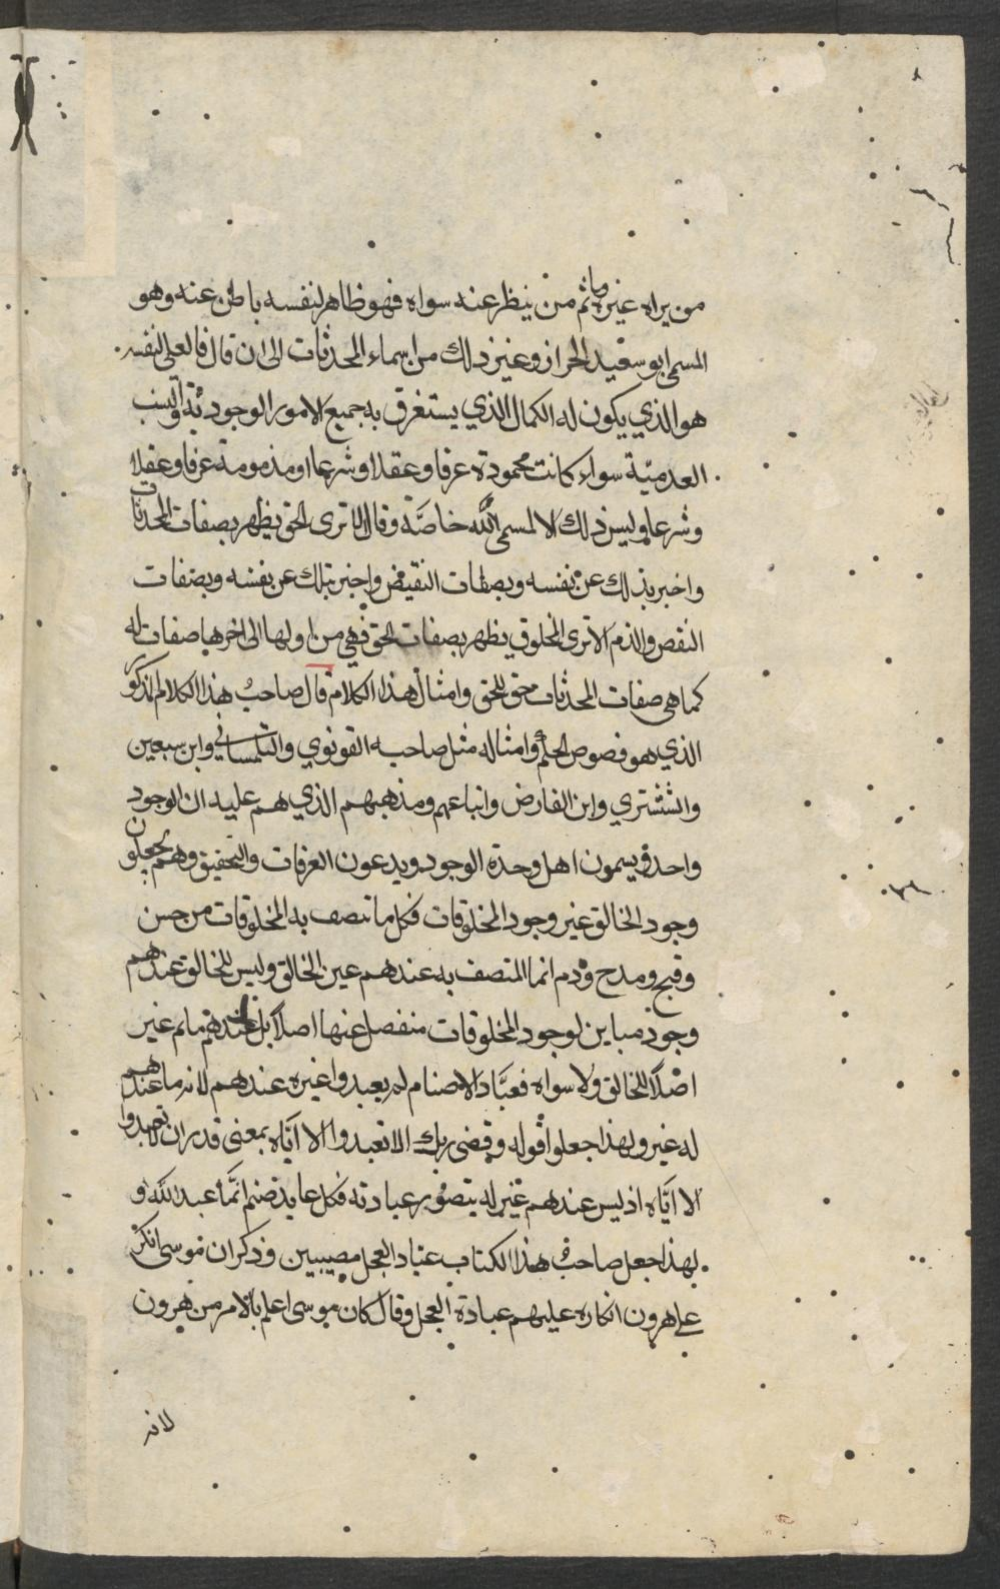 من يراه غيره ما ثم من ينظر عنه سواه فهو ظاهر لنفسه باطن عنه وهو
المسمى ابو سعيد الخراز وغير ذلك من اسماء المحدثات الى ان قال فالعلي لنفسه
هو الذي يكون له الكمال الذي يستغرق به جميع الامور الوجودية والنسب
العدمية سواء كانت محمودة عرفا وعقلا وشرعا او مذمومة عرفا وعقلا
وشرعا وليس ذلك الا لمسمى الله خاصة وقال الا ترى الحق يظهر بصفات المحدثات
واخبر بذلك عن نفسه وبصفات النقيض واخبر بتلك عن نفسه وبصفات
النقص والذم الا ترى المخلوق يظهر بصفات الحق فهي من اولها الى اخرها صفات له
كما هي صفات المحدثات حق للحق وامثال هذا الكلام قال صاحب هذا الكلام المذكور
الذي هو فصوص الحكم وامثاله مثل صاحبه القونوي والتلمساني وابن سبعين
والششتري وابن الفارض واتباعهم ومذهبهم الذي هم عليه ان الوجود
واحد ويسمون اهل وحدة الوجود ويدعون العرفان والتحقيق وهم يجعلون
وجود الخالق غير وجود المخلوقات فكل ما تتصف به المخلوقات من حسن
وقبح ومدح وذم انما المتصف به عندهم عين الخالق وليس للخالق عندهم
وجود مباين لوجود المخلوقات منفصل عنها اصلا بل عندهم ما ثم غير
اصلا للخالق ولا سواه فعباد الاصنام لم يعبدوا غيره عندهم لانه ما عندهم
له غير ولهذا جعلوا قوله وقضى ربك الا تعبدوا الا اياه بمعنى قدر ان لا تعبدوا
الا اياه اذ ليس عندهم غير له يتصور عبادته فكل عابد صنم انما عبد الله و
لهذا جعل صاحب هذا الكتاب عباد العجل مصيبين وذكر ان موسى انكر
على هرون انكاره عليهم عبادة العجل وقال كان موسى اعلم بالامر من هرون
لانه